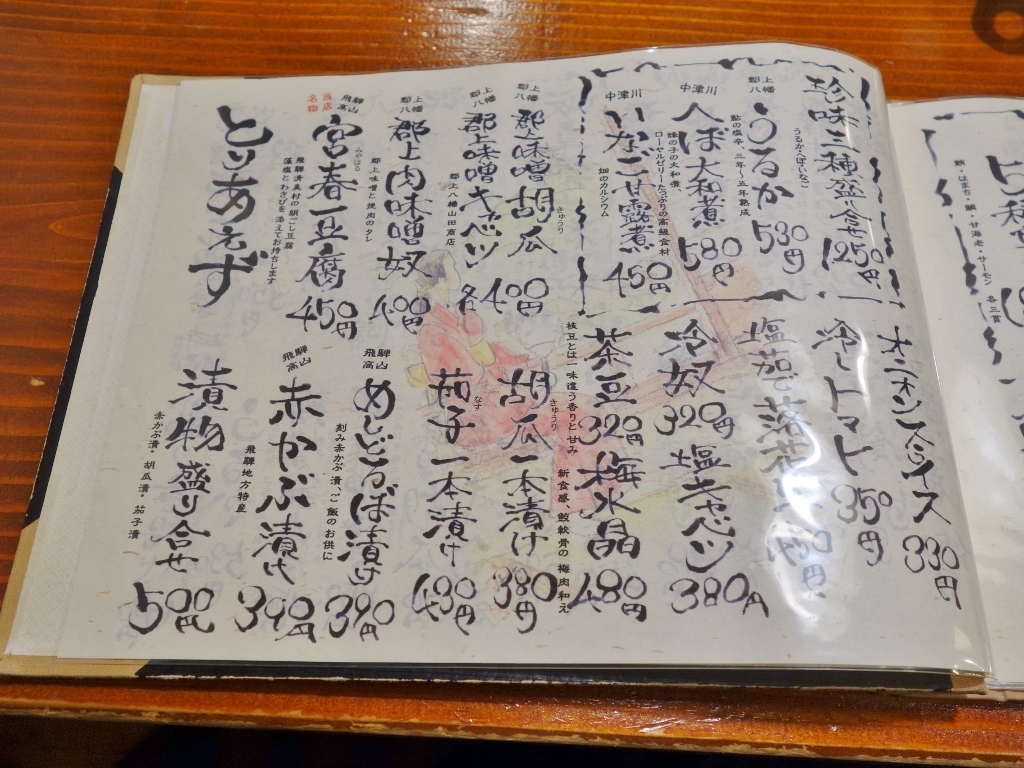 とりあえず
当店名物
飛騨高山
宮春豆腐
みやはる
450円
飛騨清美村の絹ごし豆腐
藻塩とわさびを添えてお持ちします
郡上八幡
郡上肉味噌奴
400円
郡上味噌と挽肉のタレ
郡上八幡
郡上味噌キャベツ
郡上八幡山田商店
郡上八幡
郡上味噌胡瓜
きゅうり
名400円
中津川
いなご甘露煮
450円
畑のカルシウム
中津川
へぼ大和煮
580円
蜂の子の大和煮、
ローヤルゼリーたっぷりの高級食材
郡上八幡
うるか
530円
鮎の塩辛、三年〜五年熟成
珍味三種盛り合せ
1250円
うるか・へぼ・いなご
漬物盛り合せ
500円
赤かぶ漬・胡瓜漬・茄子漬
飛騨高山
赤かぶ漬け
390円
飛騨地方特産
飛騨高山
めしどろぼ漬け
390円
刻み赤かぶ漬、ご飯のお供に
茄子一本漬け
なす
430円
胡瓜一本漬け
きゅうり
380円
茶豆 320円
枝豆とは一味違う香りと甘み
梅水晶
480円
新食感、鮫軟骨の梅肉和え
冷奴 320円
塩キャベツ
380円
塩茹で落花生
450円
冷しトマト
350円
オニオンスライス
330円
サーモン
名三貫